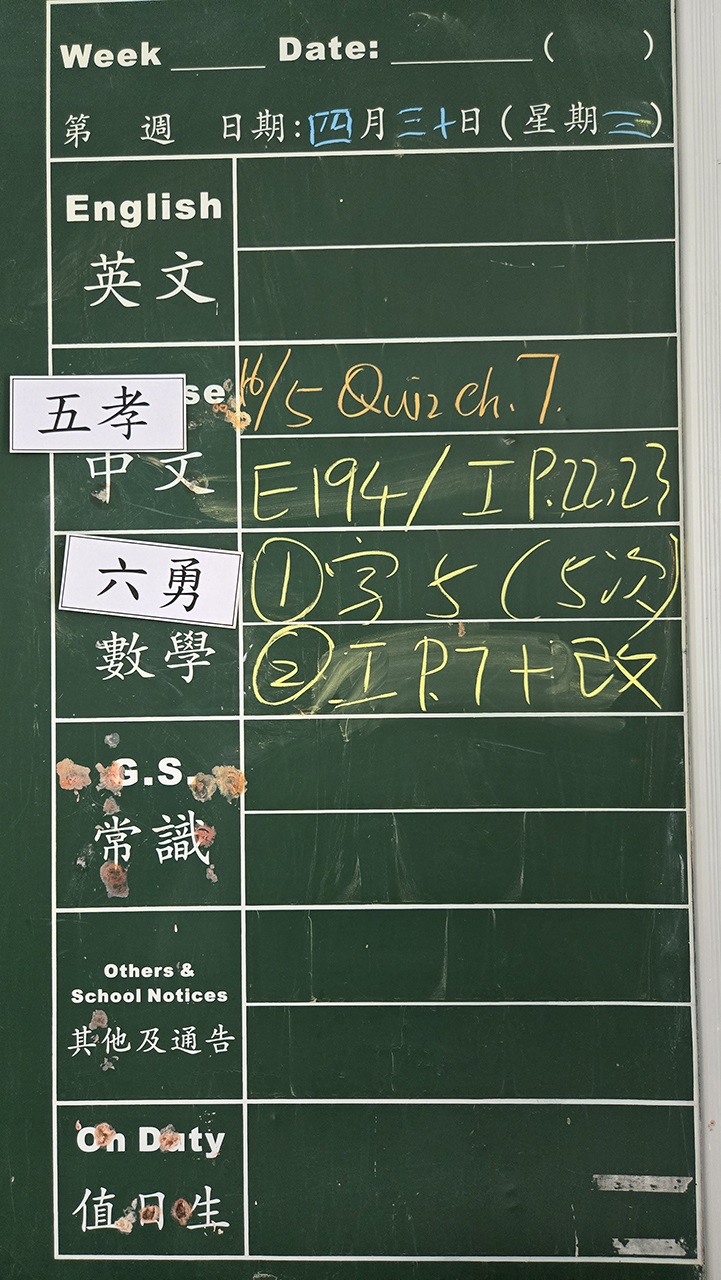 Week Date: ( )
第 週 日期:四月三十日(星期三)
English
英文
五孝
se
16/5 Quiz ch. 7.
中文
E194/工 P.22,23
六勇
①字5(5次)
數學
②工 P.7+改
G.S.
常識
Others &
School Notices
其他及通告
On Duty
值日生